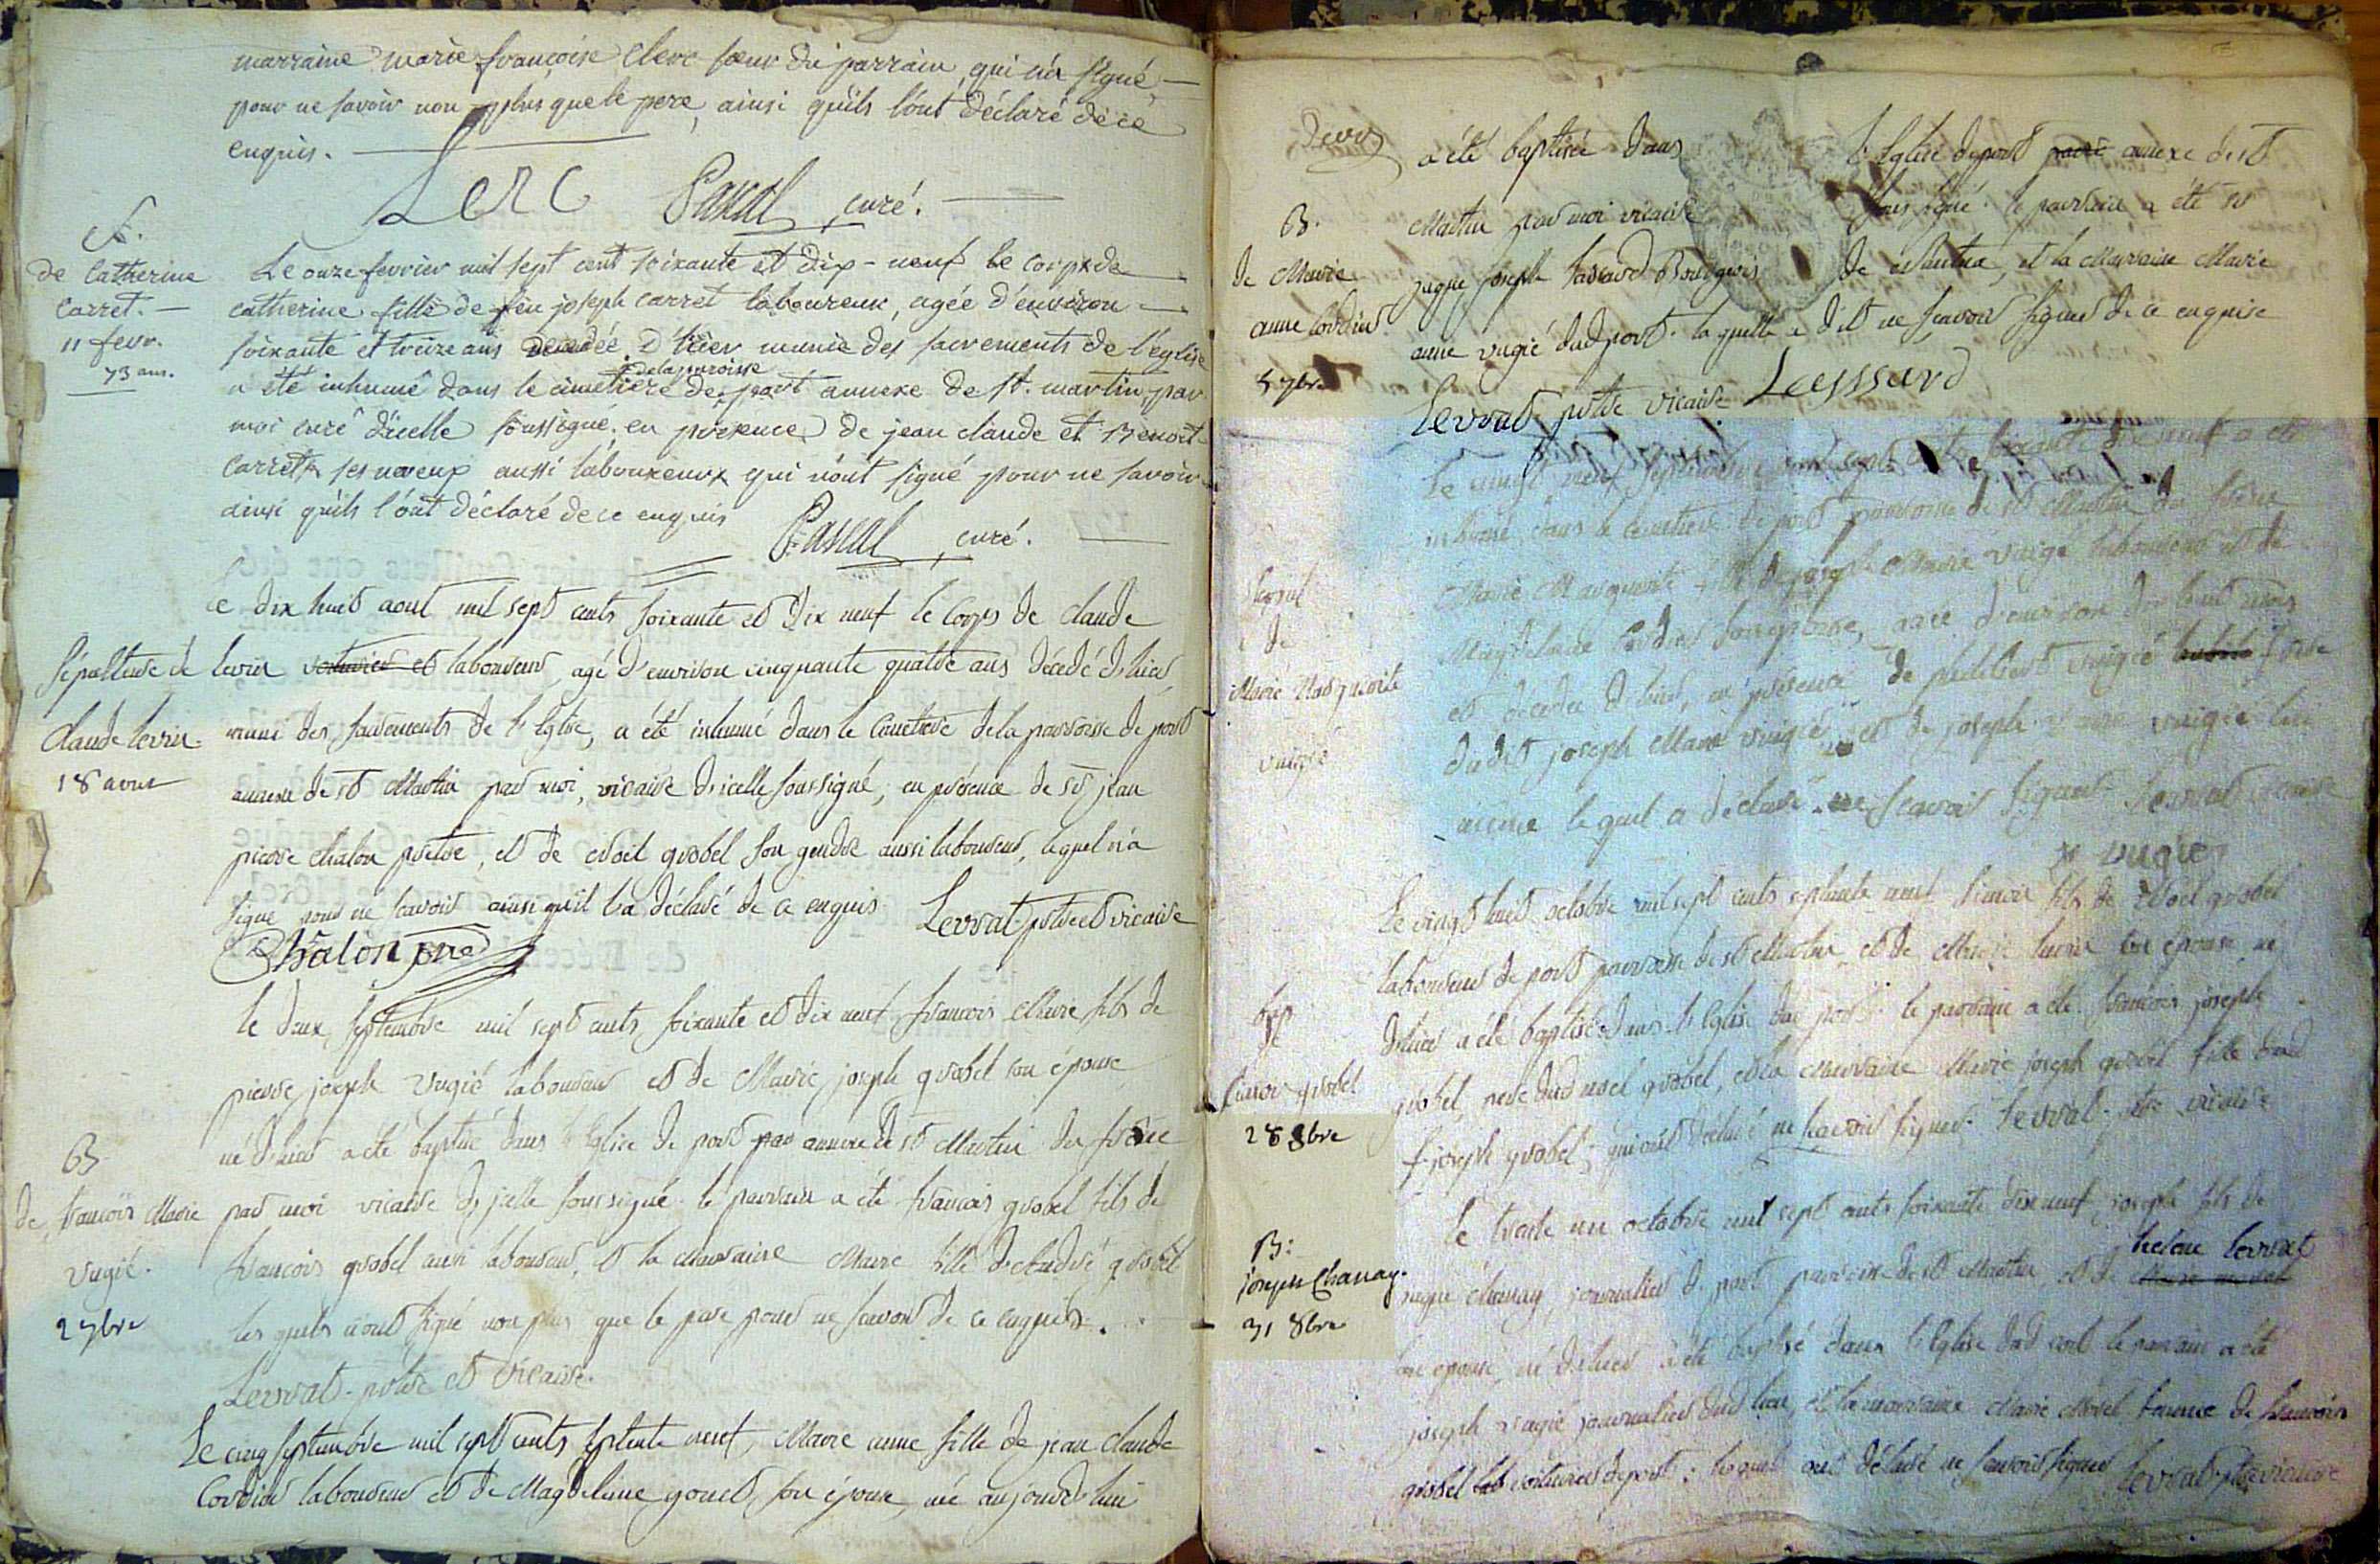 marraine marie françoise clerc sœur du parrain, qui n'a signé
pour ne savoir non plus que le pere, ainsi qu'ils l'ont déclaré de ce
enquis.
Lerc Pascal, curé.
S.
de Catherine
Carret.
11 fevr.
73 ans.
Le onze fevrier mil sept cent soixante et dix-neuf le corps de
catherine fille de feu joseph carret laboureur, agée d'environ
soixante et treize ans decedée d'hier munie des sacrements de l'eglise
de la paroisse
a été inhumé dans le cimetiere de port annexe de st. martin par
moi curé d'icelle soussigné, en présence de jean claude et Benoit
Carret ses neveux aussi laboureurs qui n'ont signé pour ne savoir
ainsi qu'ils l'ont déclaré de ce enquis Pascal, curé.
Sépulture de
Claude levrier
18 aout
le dix huit aout mil sept cents soixante et dix neuf le corps de claude
et laboureur, agé d'environ cinquante quatre ans décédé d'hier
muni des sacrements de l'Eglise, a été inhumé dans le cimetiere de la paroisse de port
annexe de st Martin par moi, vicaire d'icelle soussigné, en présence de sr jean
pierre chalon prêtre, et de noël grobel son gendre aussi laboureur, lequel n'a
signé pour ne savoir ainsi qu'il l'a déclaré de ce enquis Levrat prêtre et vicaire
Chalon pre
B
de françois Marie
vugié.
2 7bre
le deux septembre mil sept cents soixante et dix neuf, françois Marie fils de
pierre joseph vugié laboureur et de Marie joseph grobel son épouse
né d'hier a été baptisé dans l'Eglise de port par annexe de st Martin du frêne
par moi vicaire d'icelle soussigné. le parrain a été françois grobel fils de
françois grobel aussi laboureur, et la marraine Marie fille d'andré grobel
les quels n'ont signé non plus que le pere pour ne savoir de ce enquis.
Levrat prêtre et vicaire.
Le cinq septembre mil sept cents septente neuf, Marie anne fille de jean claude
Cordier laboureur et de Magdeleine gonet, son épouse, née aujourd'hui
B.
de Marie
anne Cordier
5 7bre
a été baptisée dans l'Eglise de port annexe de st
Martin par moi vicaire sous signé. le parrain a été sr
jaque joseph Bourgeois de et la Marraine Marie
anne vugié dud port. laquelle a dit ne scavoir signer de ce enquise
Levrat prêtre vicaire Leyssard
de
Marie Marguerite
vuigié
Le vingt neuf septembre mil sept cents soixante dix neuf a été
inhumé dans le cimetiere de port paroisse de st Martin du frêne
Marie Marguerite fille de joseph Marie vuigié laboureur et de
Magdelaine Cordier son épouse, agée d'environ dix huit mois
et decedée d'hier, en présence de philibert vuigié frere
dudit joseph Marie vuigié et de joseph vuigié
lequel a déclaré ne scavoir signer Levrat vicaire
vugier
bap
de
simon grobel
28 8bre
Le vingt huit octobre mil sept cents septente neuf simon fils de Noël grobel
laboureur de port paroisse de st Martin et de Marie levrier son épouse, né
d'hier a été baptisé dans l'Eglise dud port. le parrain a été françois joseph
grobel, pere dud noel grobel, et la marraine Marie joseph grobel fille dud
f. joseph grobel; qui ont déclaré ne scavoir signer. Levrat ptre vicaire
B:
joseph Chanay.
31 8bre
le trente un octobre mil sept cents soixante dix neuf joseph fils de
levrat
jaque chanay, journalier de port paroisse de st Martin et de
son epouse, né d'hier a été baptisé dans l'Eglise dud port le parrain a été
joseph vugié journalier dud lieu, et la marraine Marie Morel femme de françois
grobel voiturier de port; lesquels ont déclaré ne scavoir signer Levrat ptre vicaire